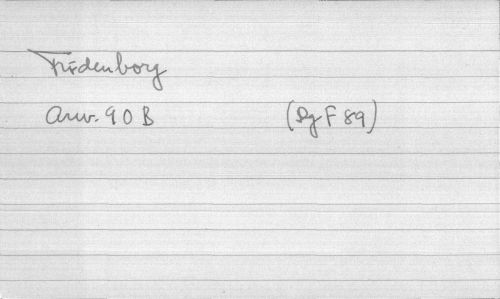 Fridenborg
Arw. 90 B (Dg F 89)